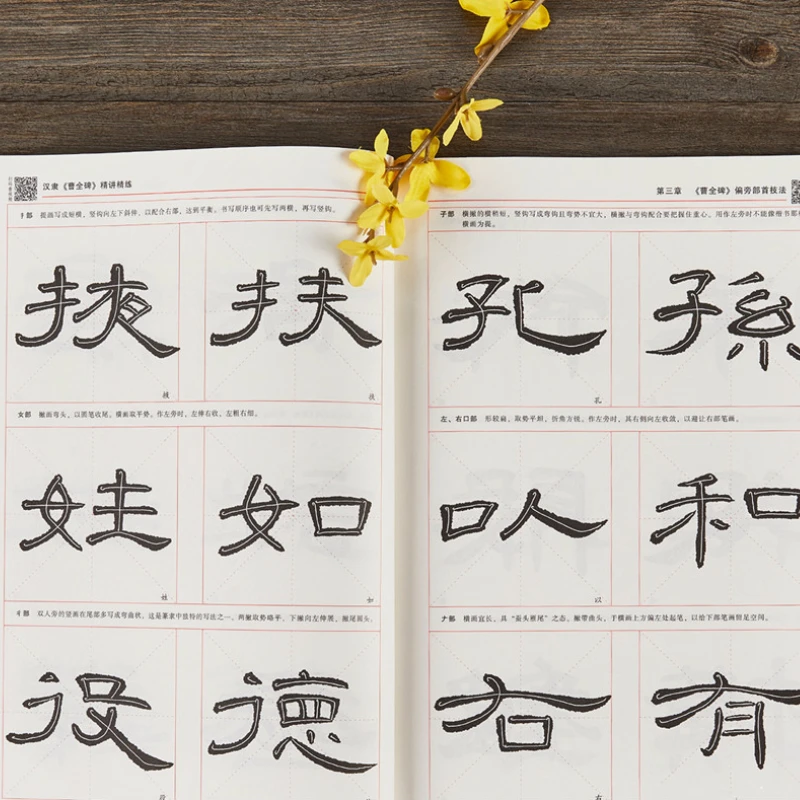 汉隶《曹全碑》精讲精练
扌部 提画写成短横，竖钩向左下斜伸，以配合右部，达到平衡。书写顺序也可先写两横，再写竖钩。
掖 扶
掖 扶
女部 撇画弯头，以圆笔收尾。横画取平势。作左旁时，左伸右收，左粗右细。
姓 如
姓 如
彳部 双人旁的竖画在尾部多写成弯曲状，这是篆隶中独特的写法之一。两撇取势略平，下撇向左伸展，撇尾圆头。
役 德
役
第三章 《曹全碑》偏旁部首技法
子部 横撇的横稍短，竖钩写成弯钩且弯势不宜大，横撇与弯钩配合要把握住重心。用作左旁时不能像楷书那
横画为提。
孔 孫
孔
左、右口部 形较扁，取势平坦，折角方锐。作左旁时，其右侧向左收敛，以避让右部笔画。
以 和
以
ナ部 横画宜长，具“蚕头雁尾”之态。撇带曲头，于横画上方偏左处起笔，以给下部笔画留足空间。
右 有
右